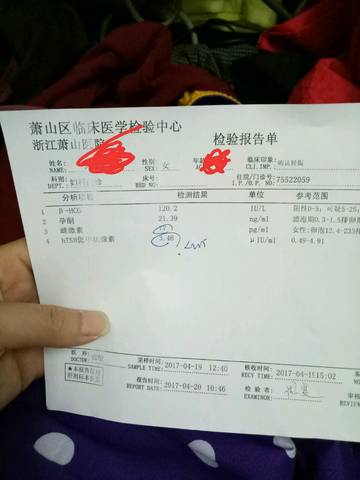 萧山区临床医学检验中心
浙江萧山医院 检验报告单
姓名: 性别: 女 年龄: 临床印象: 确认妊娠
NAME: SEX: CLI.IMP.:
科别: 床号: 住院/门诊号:
DEPT.: BED NO.: I.P./O.P. NO.: 75522059
分析项目 检测结果 单位 参考范围
1 β-HCG 120.2 IU/L 阴性0-5; 可疑5-25
2 孕酮 21.39 ng/ml 滤泡期0.3-1.5
3 雌激素 pg/ml 女性:卵泡12.4-233
4 hTSH促甲状腺素 3.46 μIU/ml 0.49-4.91
医师: 采样时间: 2017-04-19 12:40 接收时间: 2017-04-19 15:02
DOCTOR: SAMPLE TIME: RECV TIME:
★本报告仅对 报告时间: 2017-04-20 10:46 检验者:
所测标本负责 REPORT DATE: EXAMINOR: REVIEW